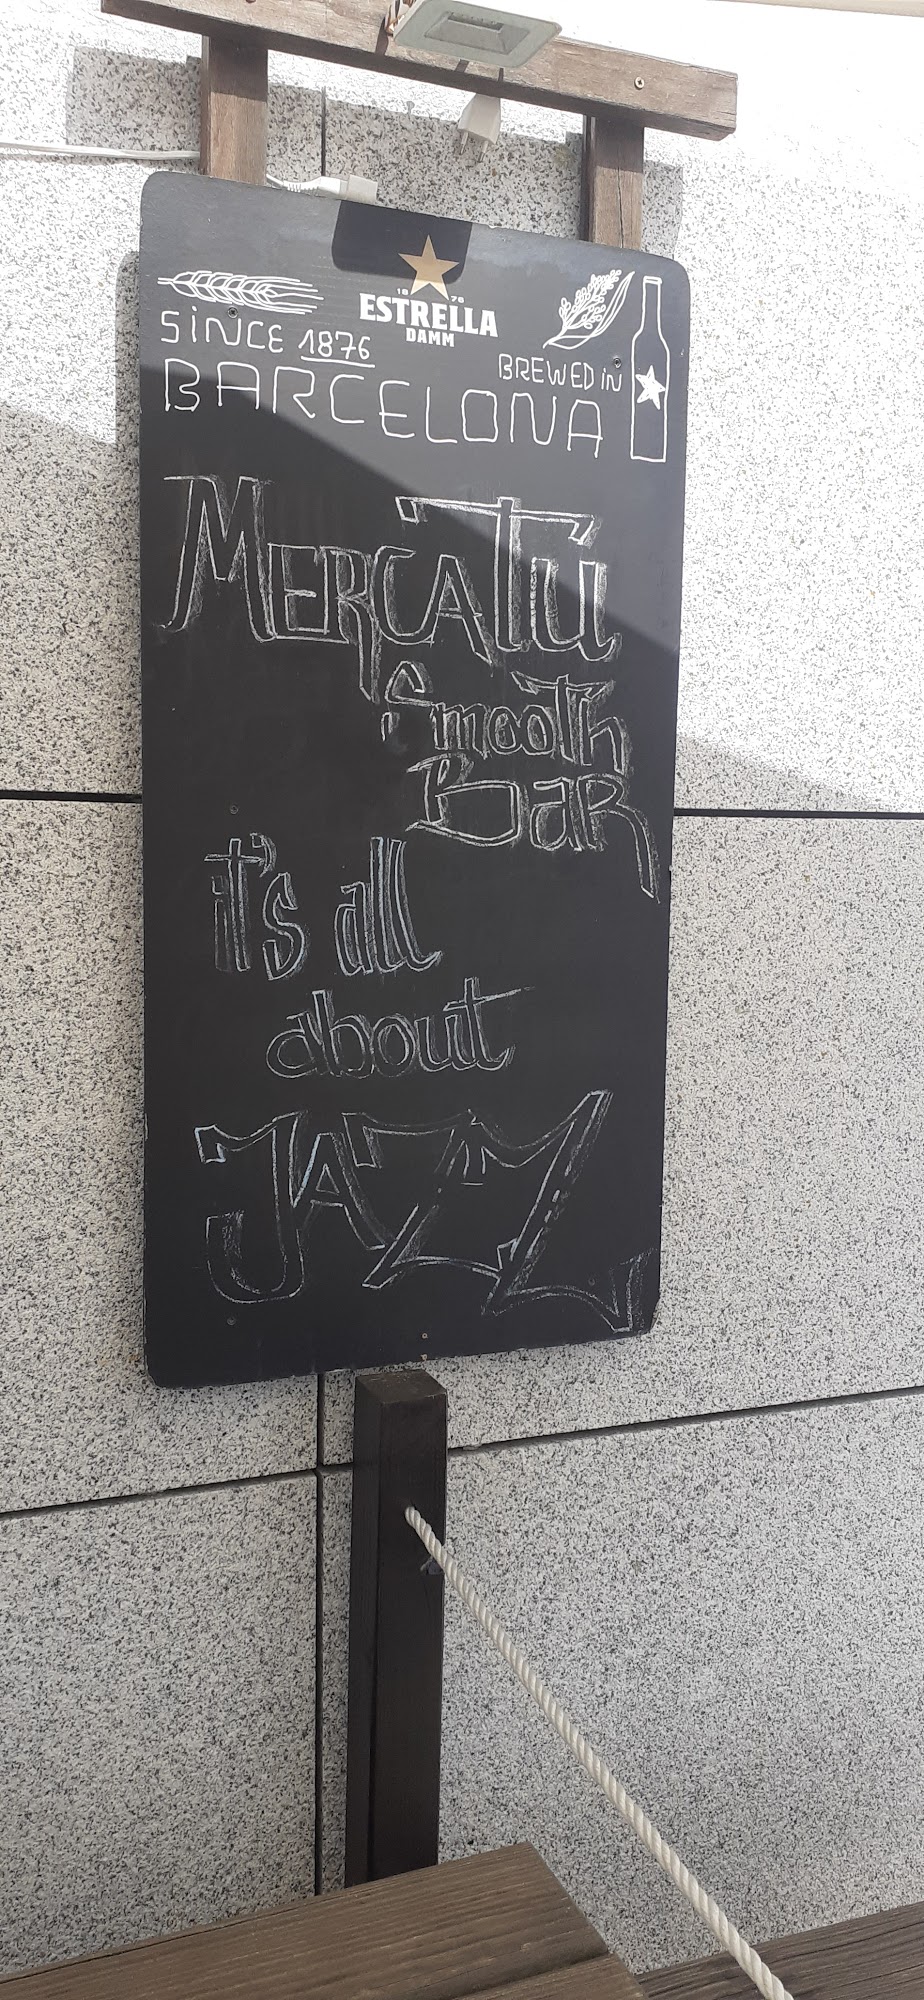 18 76
ESTRELLA
DAMM
SINCE 1876
BREWED IN
BARCELONA
MERCATIÚ
Smooth
BaR
it's all
about
JAZZ